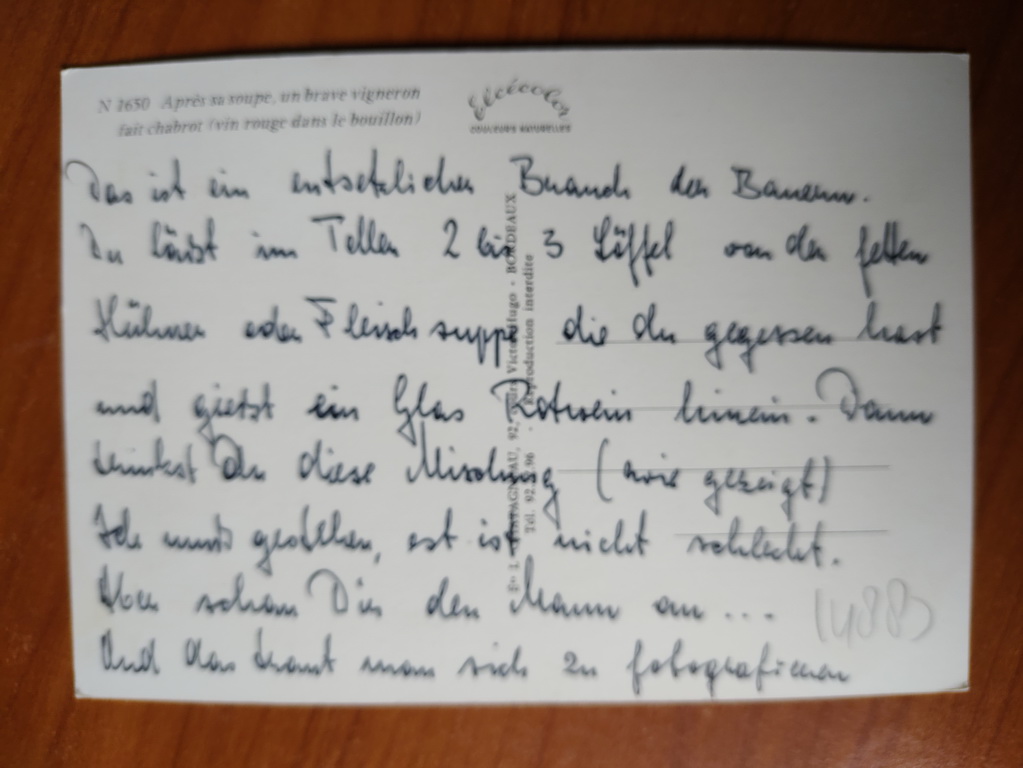 N 1650 Après sa soupe, un brave vigneron
fait chabrot (vin rouge dans le bouillon)
Elcécolor
COULEURS NATURELLES
Das ist ein entsetzlicher Brauch der Bauern.
Du läßt im Teller 2 bis 3 Löffel von der fetten
Hühner oder Fleischsuppe die du gegessen hast
und gießt ein Glas Rotwein hinein. Dann
trinkst Du diese Mischung (wie gezeigt)
Ich muß gestehen, est ist nicht schlecht.
Aber schau Dir den Mann an ...
Und das traut man sich zu fotografieren
Victor Hugo - BORDEAUX
Tél. 92. 96 - Reproduction interdite